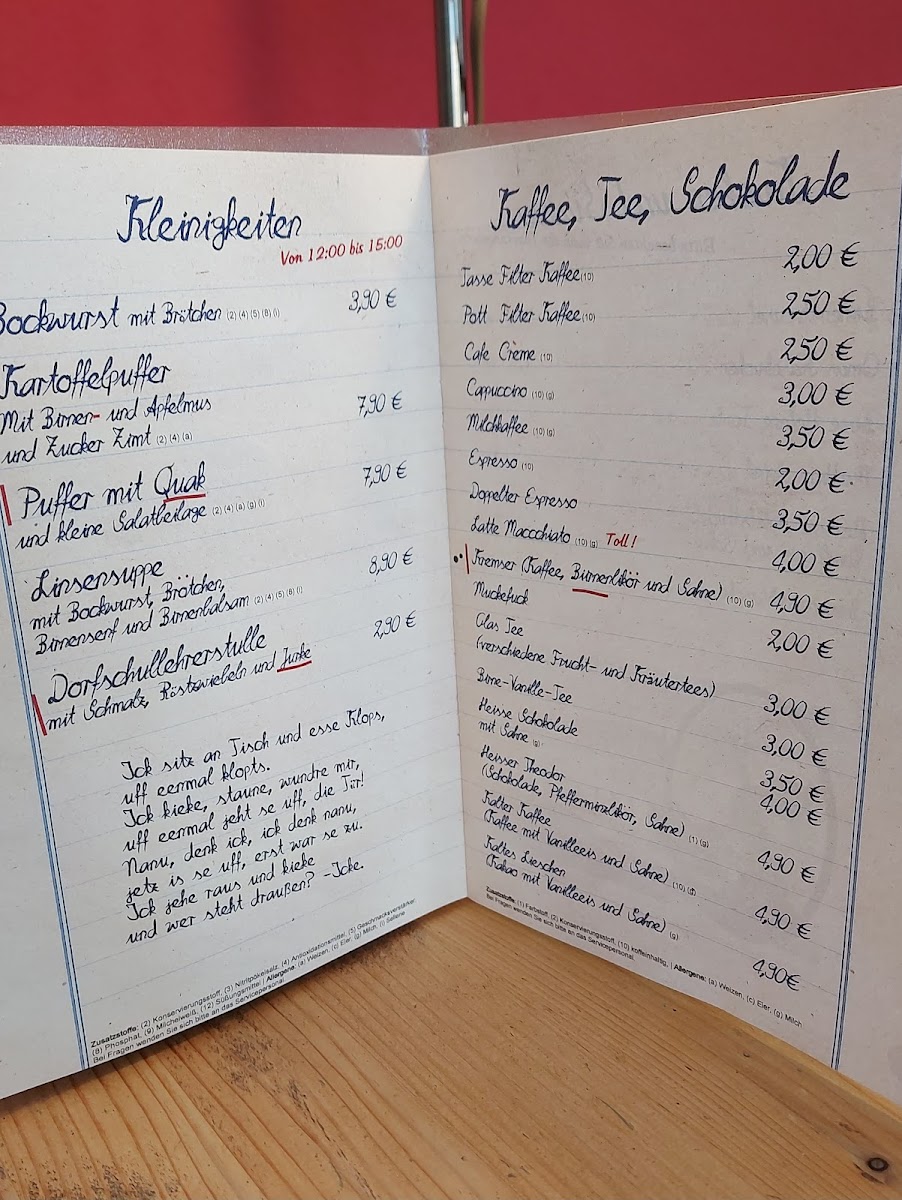 Kleinigkeiten
Von 12:00 bis 15:00
Bockwurst mit Brötchen (2) (4) (5) (8) (i) 3,90 €
Kartoffelpuffer
Mit Birnen- und Apfelmus 7,90 €
und Zucker Zimt (2) (4) (a)
Puffer mit Quak 7,90 €
und kleine Salatbeilage (2) (4) (a) (g) (i)
Linsensuppe 8,90 €
mit Bockwurst, Brötchen,
Birnensenf und Birnenbalsam (2) (4) (5) (8) (i)
Dorfschullehrerstulle 2,90 €
mit Schmalz, Röstzwiebeln und Jurke
Ick sitz an Tisch und esse Klops,
uff eenmal klopts.
Ick kieke, staune, wundre mir,
uff eenmal jeht se uff, die Tür!
Nanu, denk ick, ick denk nanu,
jetz is se uff, erst war se zu.
Ick jehe raus und kieke
und wer steht draußen? -Icke.
Zusatzstoffe: (2) Konservierungsstoff, (3) Nitritpökelsalz, (4) Antioxidationsmittel, (5) Geschmacksverstärker,
(8) Phosphat, (9) Milcheiweiß, (12) Süßungsmittel | Allergene: (a) Weizen, (c) Eier, (g) Milch, (i) Sellerie
Bei Fragen wenden Sie sich bitte an das Servicepersonal
Kaffee, Tee, Schokolade
Tasse Filter Kaffee (10) 2,00 €
Pott Filter Kaffee (10) 2,50 €
Cafe Crème (10) 2,50 €
Cappuccino (10) (g) 3,00 €
Milchkaffee (10) (g) 3,50 €
Espresso (10) 2,00 €
Doppelter Espresso 3,50 €
Latte Maccchiato (10) (g) Toll! 4,00 €
Kremser (Kaffee, Birnenlikör und Sahne) (10) (g) 4,90 €
Muckefuck 2,00 €
Glas Tee
(verschiedene Frucht- und Kräutertees) 3,00 €
Birne-Vanille-Tee 3,00 €
Heisse Schokolade 3,50 €
mit Sahne (g) 4,00 €
Heisser Theodor
(Schokolade, Pfefferminzlikör, Sahne) (1) (g) 4,90 €
Kalter Kaffee
(Kaffee mit Vanilleeis und Sahne) (10) (g) 4,90 €
Kaltes Lieschen
(Kakao mit Vanilleeis und Sahne) (g) 4,90€
Zusatzstoffe: (1) Farbstoff, (2) Konservierungsstoff, (10) koffeinhaltig, | Allergene: (a) Weizen, (c) Eier, (g) Milch
Bei Fragen wenden Sie sich bitte an das Servicepersonal